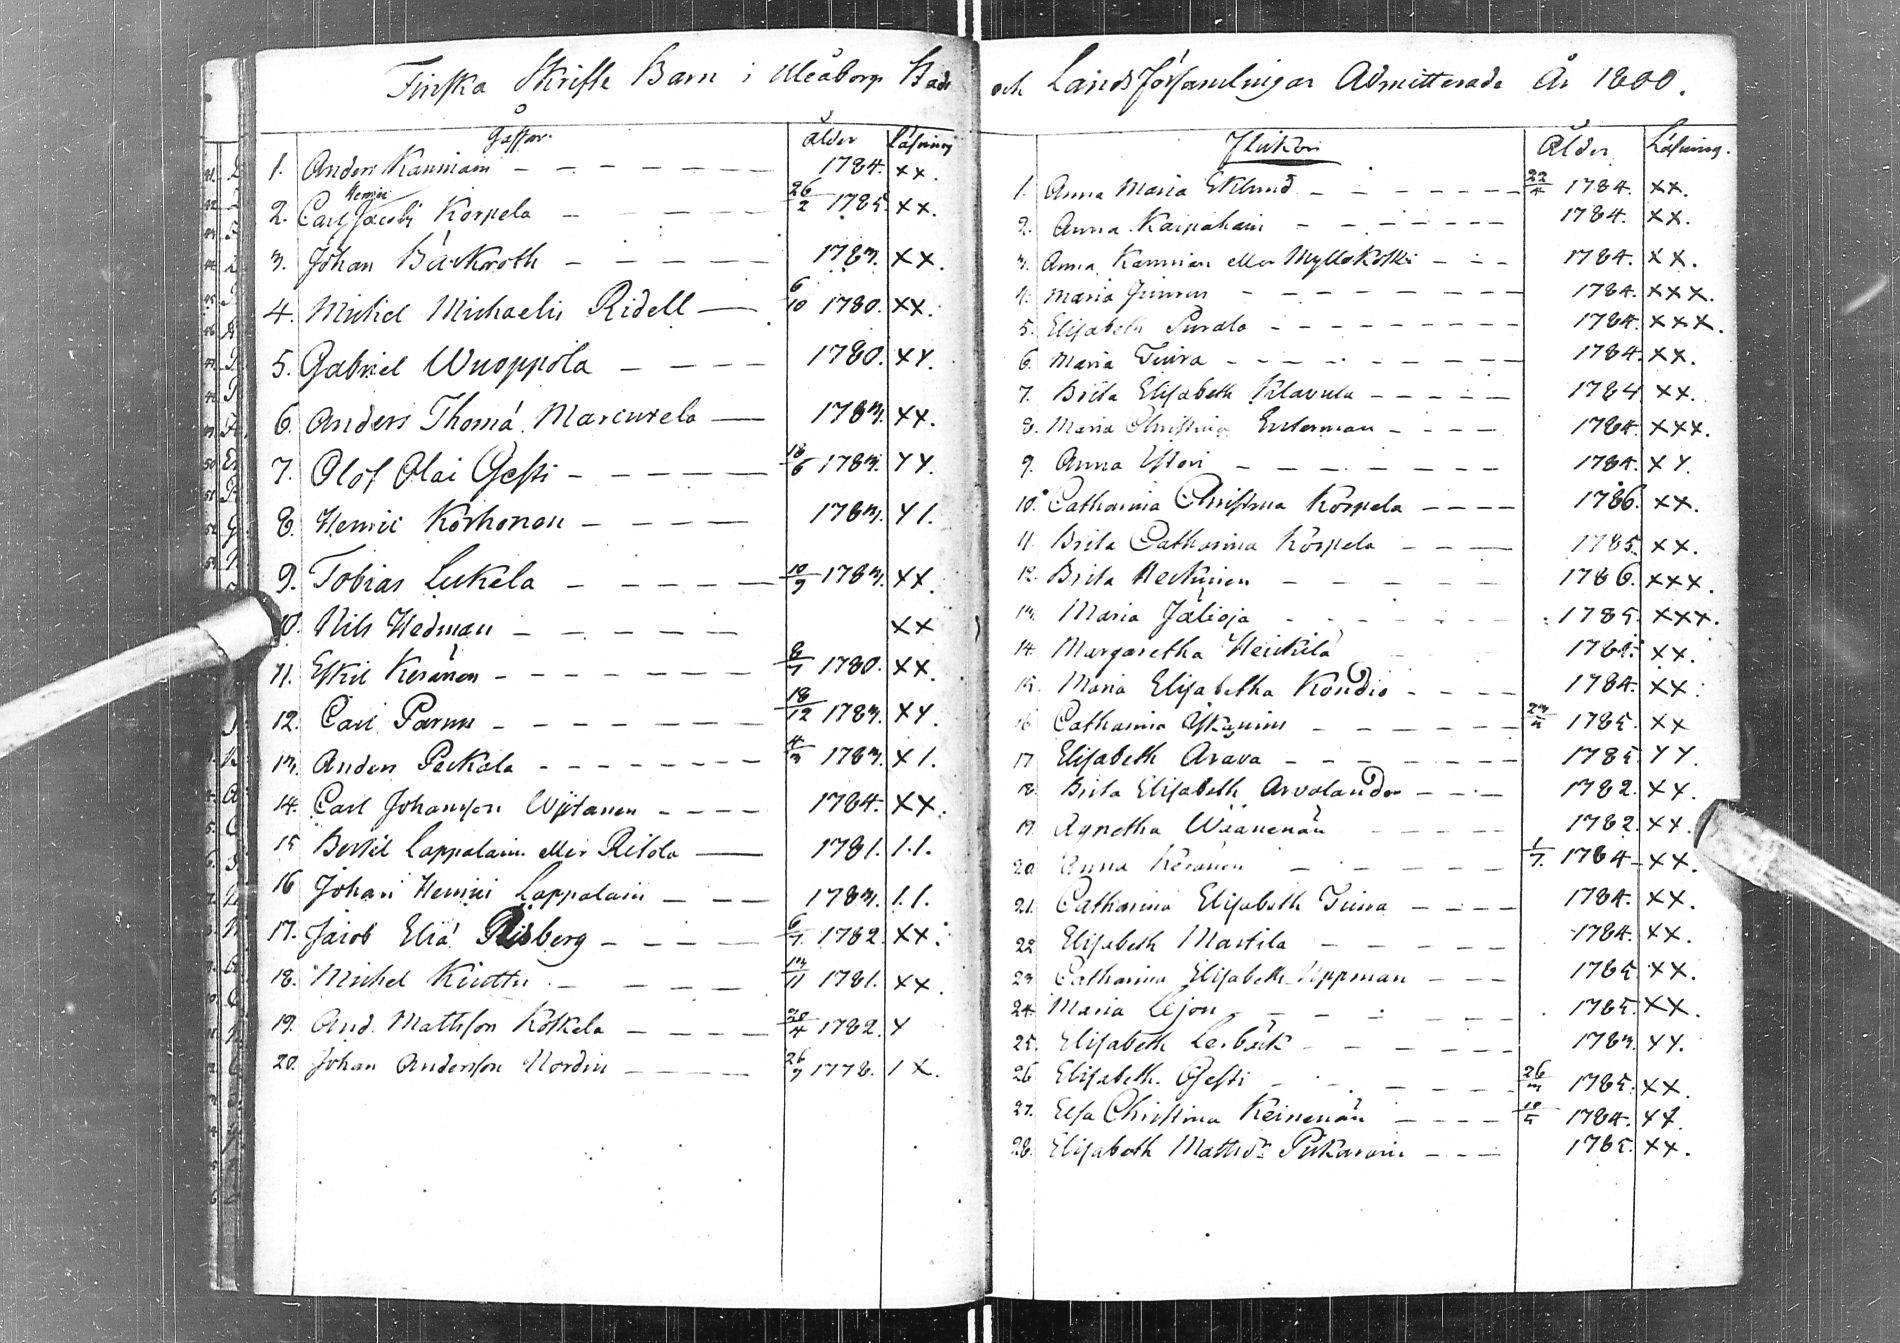 Finska Skrifte Barn i Uleåborgs Stads
Gåssar. Ålder Läsning
1. Anders Kanniain 1784. xx.
2. Carl Henric Jacobi Korpela 26/2 1785. xx.
3. Johan Bäckroth 1783. xx.
4. Michel Michaelis Ridell 6/10 1780. xx.
5. Gabriel Wuoppola 1780. xx.
6. Anders Thomæ Marcurela 1783. xx.
7. Olof Olai Gesti 18/6 1783. xx.
8. Henric Korhonen 1783. x1.
9. Tobias Lukela 10/9 1783. xx.
10. Nils Hedman xx
11. Eskil Keränen 8/7 1780. xx.
12. Carl Parnu 18/12 1783. xx.
13. Anders Peckala 4/3 1783. x1.
14. Carl Johansson Wjitanen 1784. xx.
15 Bertil Lappalain eller Ritola 1781. 1.1.
16 Johan Henrici Lappalain 1783. 1.1.
17. Jacob Eliæ Risberg 6/7 1782. xx.
18. Michel Kinttu 13/11 1781. xx.
19. And. Mattsson Koskela 20/4 1782. x
20. Johan Andersson Nordin 26/9 1778. 1x.
och Landsförsamlingar Admitterade År 1800.
Flickor Ålder Läsning.
1. Anna Maria Eklund 22/4 1784. xx.
2. Anna Kaipahain 1784. xx.
3. Anna Kannian eller Myllykoski 1784. xx.
4. Maria 1784. xxx.
5. Elisabeth Purala 1784. xxx.
6. Maria Tuira 1784. xx.
7. Brita Elisabeth Klavula 1784 xx.
8. Maria Christina Enterman 1784. xxx.
9. Anna 1784. xx.
10. Catharina Christina Korpela 1786. xx.
11. Brita Catharina Korpela 1785. xx.
12. Brita Heckinen 1786. xxx.
13. Maria Jälioja 1785. xxx.
14. Margaretha Heickilä xx.
15. Maria Elisabetha Kondio 1784. xx.
16. Catharina 1785. xx
17 Elisabeth Arava 1785. xx.
18. Brita Elisabeth Arvolander 1782. xx.
19. Agnetha Wäänenän 1782. xx.
20. Anna Keränen 1/7. 1784 xx.
21. Catharina Elisabeth Tuira 1784. xx.
22 Elisabeth Martila 1784. xx.
23 Catharina Elisabeth Uppman 1785 xx.
24. Maria Lejon 1785. xx.
25. Elisabeth Lerbäck 1783. xx.
26 Elisabeth. Gesti 26/3 1785. xx.
27. Elsa Christina Keinenän 10/5 1784. xx.
28. Elisabeth Mattsdr Pitkarain 1785. xx.